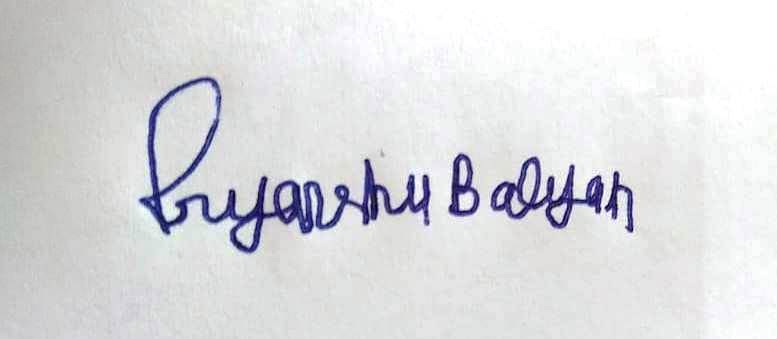 Priyanshu Balyan